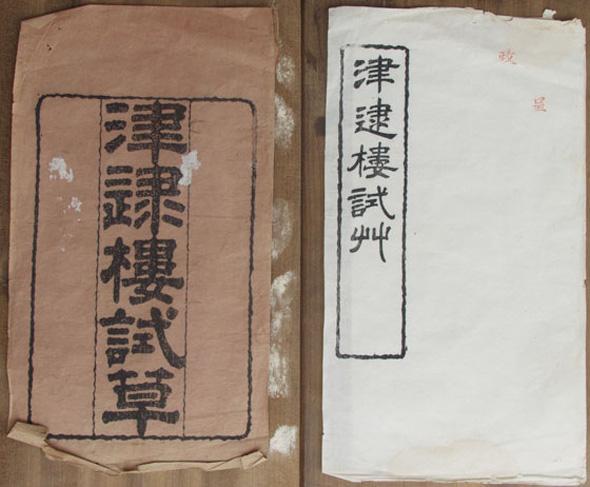 津逮樓試草
津逮樓試艸
呈